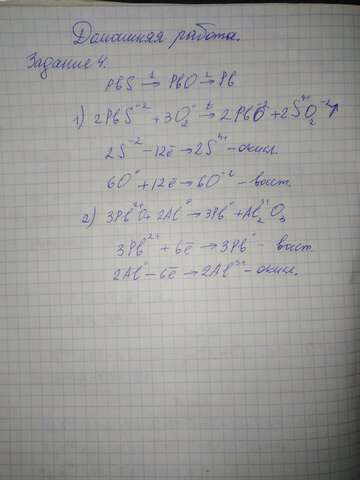 Домашняя работа.
Задание 4.
PbS →¹ PbO →² Pb
1) 2PbS⁻² + 3O₂⁰ →ᵗ 2PbO⁻² + 2S⁴⁺O₂⁻²↑
2S⁻² - 12ē → 2S⁴⁺ - окисл.
6O⁰ + 12ē → 6O⁻² - восст.
2) 3Pb²⁺O + 2Al⁰ → 3Pb⁰ + Al₂³⁺O₃
3Pb²⁺ + 6ē → 3Pb⁰ - восст.
2Al⁰ - 6ē → 2Al³⁺ - окисл.